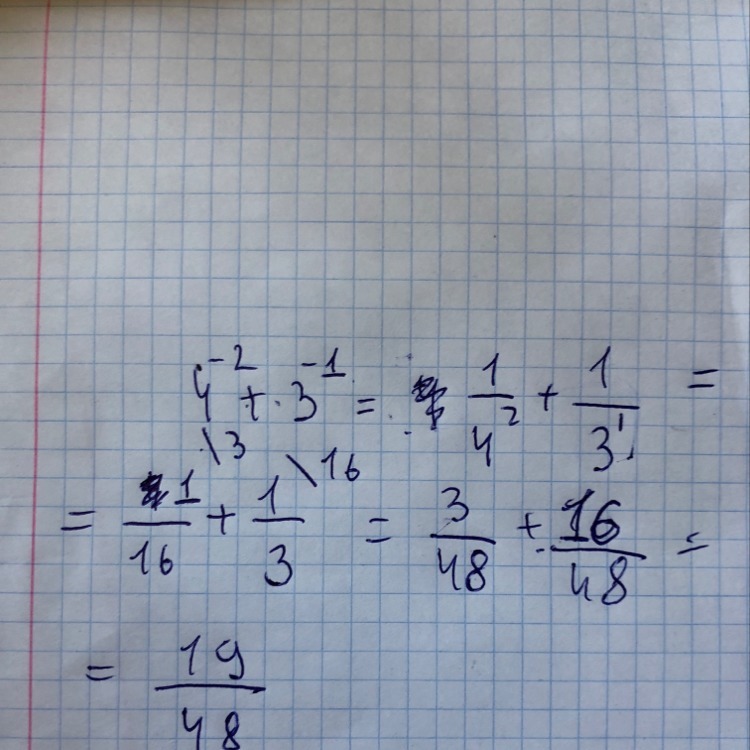 4⁻² + 3⁻¹ = 1/4² + 1/3¹ =
= 1/16 \3 + 1/3 \16 = 3/48 + 16/48 =
= 19/48